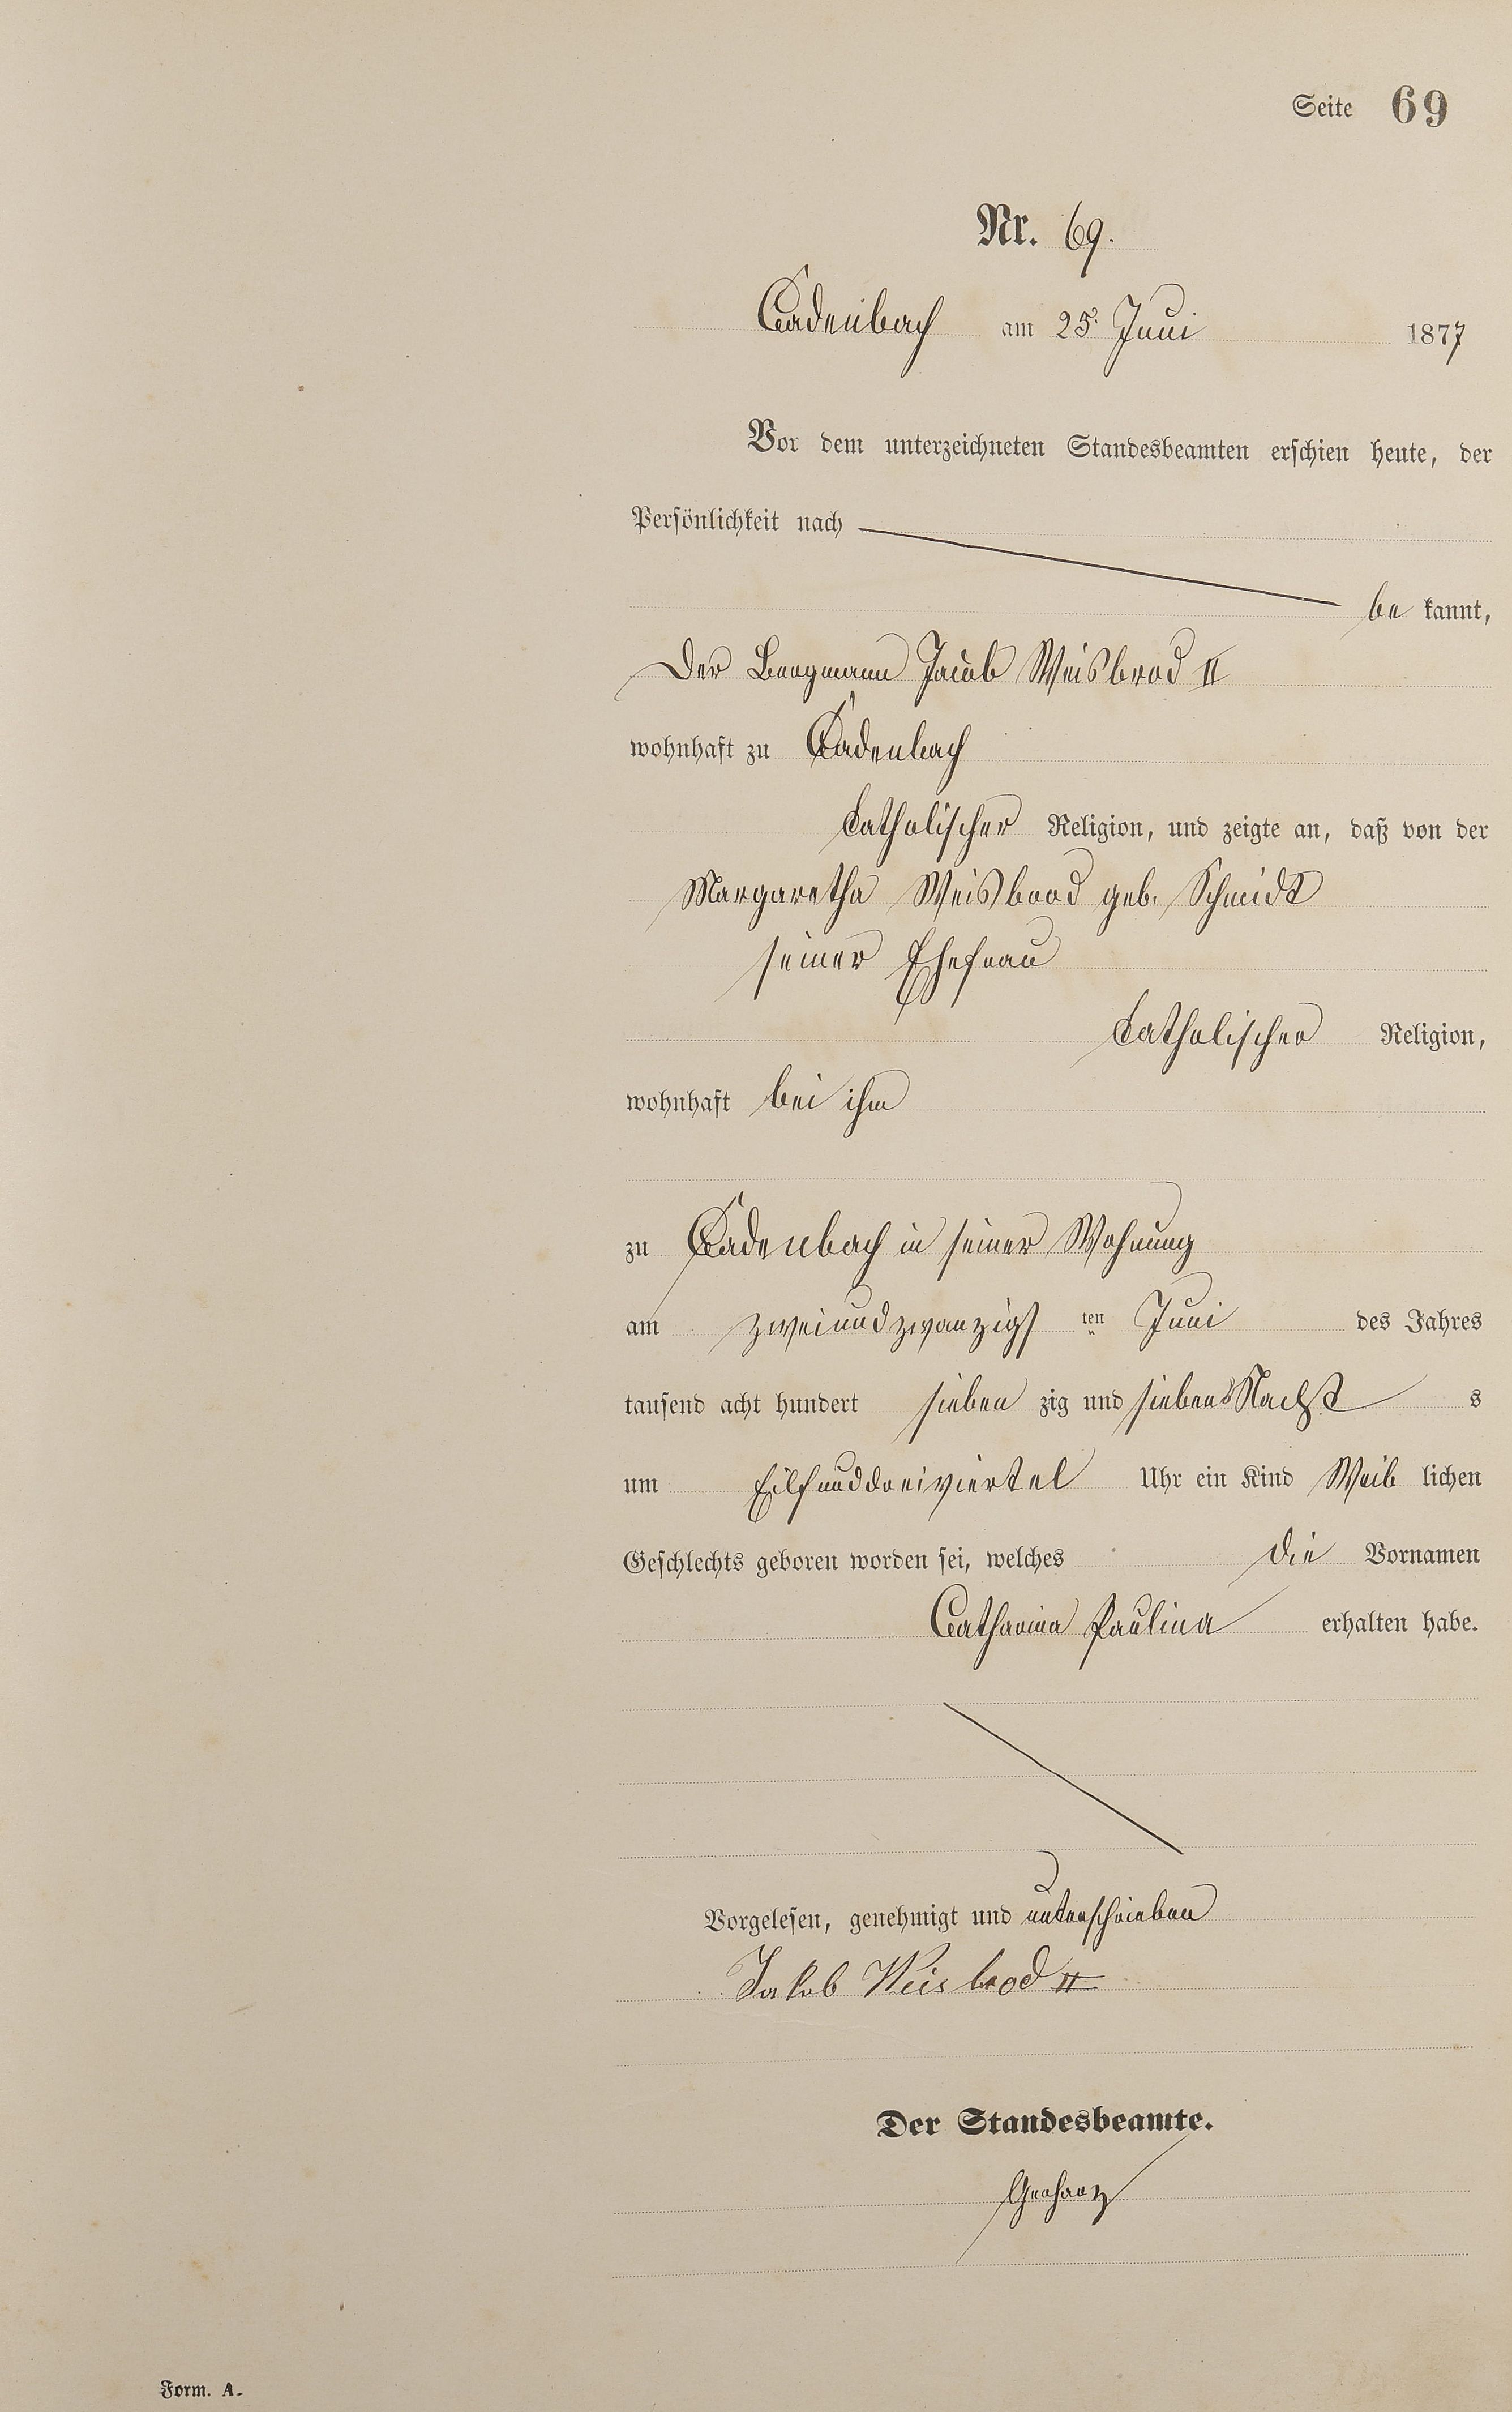 Seite 69
Nr. 69.
Cadenbach am 25. Juni 1877
Vor dem unterzeichneten Standesbeamten erschien heute, der
Persönlichkeit nach
be kannt,
Der Bergmann Jacob Weisbrod II
wohnhaft zu Cadenbach
catholischer Religion, und zeigte an, daß von der
Margaretha Weisbrod geb. Schmidt
seiner Ehefrau
catholischer Religion,
wohnhaft bei ihm
zu Cadenbach in seiner Wohnung
am zweiundzwanzigs ten Juni des Jahres
tausend acht hundert sieben zig und sieben Nacht s
um Eilfunddreiviertel Uhr ein Kind Weib lichen
Geschlechts geboren worden sei, welches die Vornamen
Catharina Paulina erhalten habe.
Vorgelesen, genehmigt und unterschrieben
Jakob Weisbrod II
Der Standesbeamte.
Gerharz
Form. A.